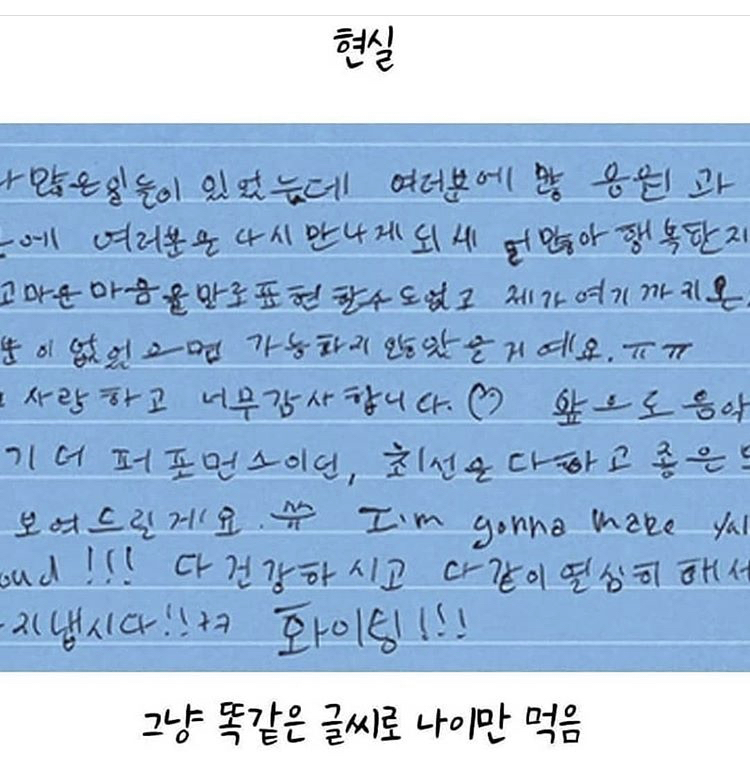 현실
많은 일들이 있었는데 여러분에 많 응원 과
에 여러분은 다시 만나게 되 세 많아 행복한지
고마운 마음을 말로 표현 할수도 없고 제가 여기 까지 온
분 이 없었으면 가능하지 않았을 거 예요. ㅠㅠ
사랑하고 너무 감사합니다. ♡ 앞으로 음악
기 더 퍼포먼스이던, 최선을 다하고 좋은
보여드릴게요. I'm gonna make yal
oud!!! 다 건강하시고 다같이 열심히 해서
지냅시다!! ㅋㅋ 화이팅!!!
그냥 똑같은 글씨로 나이만 먹음